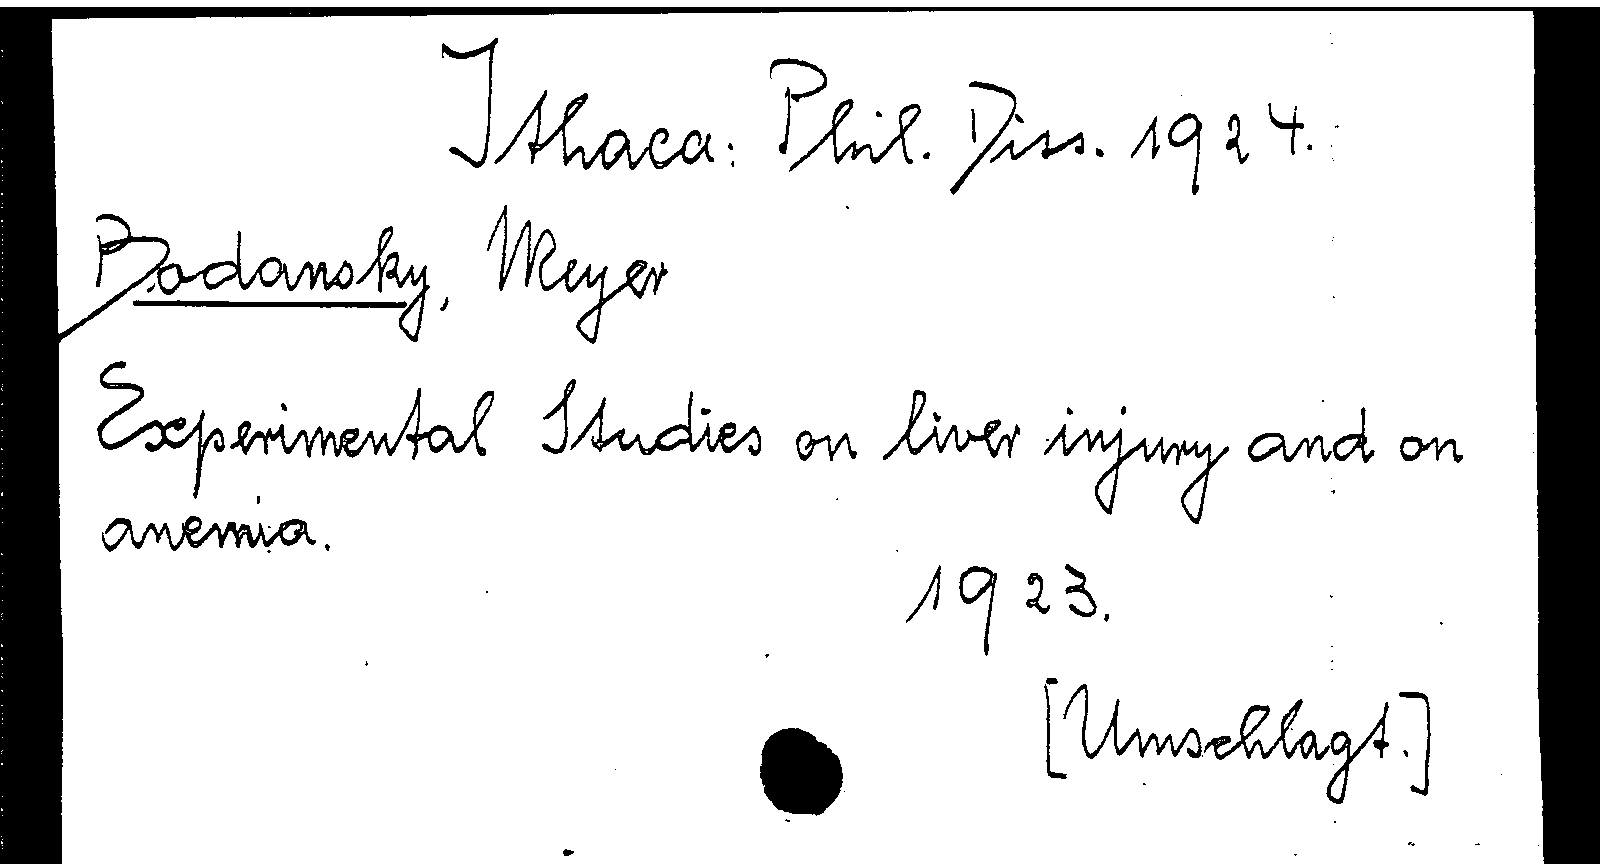 Ithaca: Phil. Diss. 1924.
Bodansky, Meyer
Experimental Studies on liver injury and on
anemia.
1923.
[Umschlagt.]